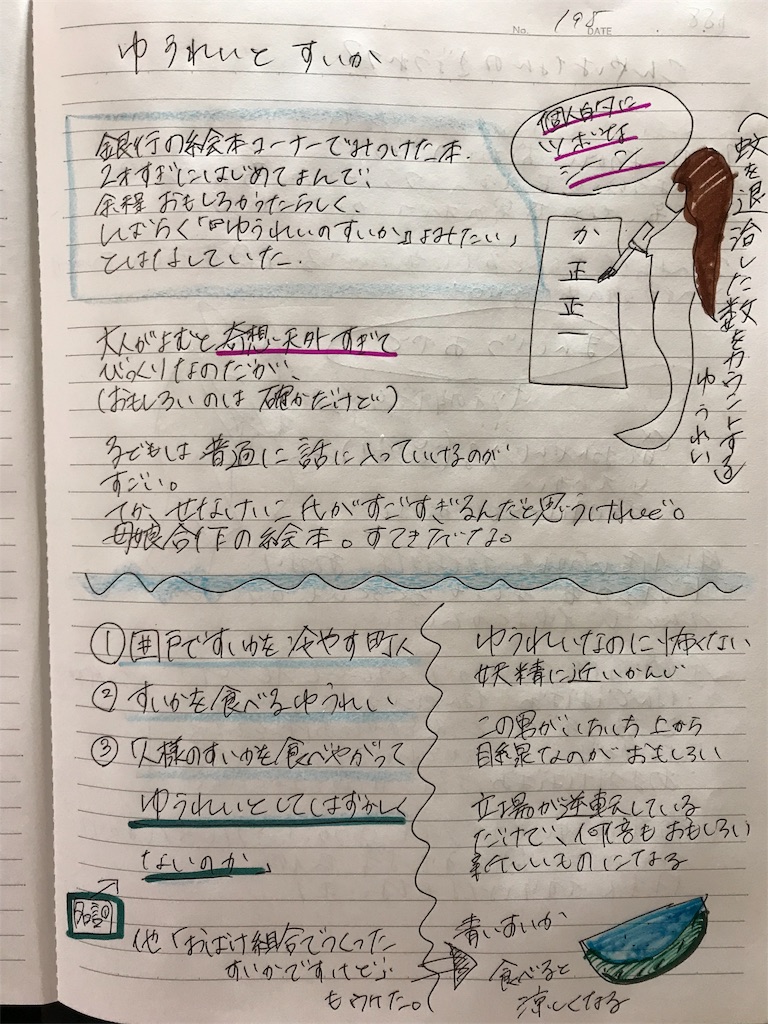 No. 198 DATE
ゆうれいと すいか
銀行の絵本コーナーでみつけた本.
2才すぎにはじめてよんで、
余程 おもしろかったらしく、
しばらく「『ゆうれいのすいか』よみたい」
とはなしていた.
個人的に
ツボな
シーン
か
正
正
一
(蚊を退治した数をカウントする
ゆうれい)
大人がよむと 奇想天外すぎて
びっくりなのだが、
(おもしろいのは 確かだけど)
子どもは 普通に 話に入っていけるのが
すごい。
てか、せなけいこ氏がすごすぎるんだと思うけれど。
母娘合作の絵本。すてきだな。
① 井戸ですいかを冷やす町人
② すいかを食べるゆうれい
③ 「人様のすいかを食べやがって
ゆうれいとしてはずかしく
ないのか」
名言!
他「おばけ組合でつくった
すいかですけど」
もウケた。
ゆうれいなのに怖くない
妖精に近いかんじ
この男がいちいち上から
目線なのがおもしろい
立場が逆転している
だけで、何倍もおもしろい
新しいものになる
青いすいか
食べると
涼しくなる